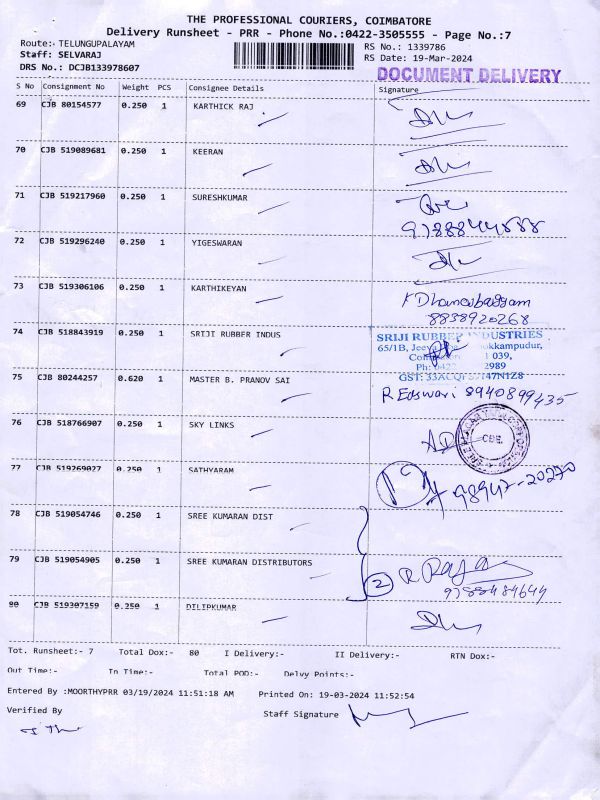 THE PROFESSIONAL COURIERS, COIMBATORE
Delivery Runsheet - PRR - Phone No.:0422-3505555 - Page No.:7
Route:- TELUNGUPALAYAM
RS No.: 1339786
Staff: SELVARAJ
RS Date: 19-Mar-2024
DRS No.: DCJB133978607
DOCUMENT DELIVERY
S No Consignment No Weight PCS Consignee Details Signature
69 CJB 80154577 0.250 1 KARTHICK RAJ
70 CJB 519089681 0.250 1 KEERAN
71 CJB 519217960 0.250 1 SURESHKUMAR
9788844888
72 CJB 519296240 0.250 1 YIGESWARAN
73 CJB 519306106 0.250 1 KARTHIKEYAN
8838920268
74 CJB 518843919 0.250 1 SRIJI RUBBER INDUS
SRIJI RUBBER INDUSTRIES
65/1B,
039,
Ph: 2989
GST:
75 CJB 80244257 0.620 1 MASTER B. PRANOV SAI
R Easwari 8940899435
76 CJB 518766907 0.250 1 SKY LINKS
CBE.
77 CJB 519269027 0.250 1 SATHYARAM
98947-20270
78 CJB 519054746 0.250 1 SREE KUMARAN DIST
79 CJB 519054905 0.250 1 SREE KUMARAN DISTRIBUTORS
2 R Raja
9788484644
80 CJB 519307159 0.250 1 DILIPKUMAR
Tot. Runsheet:- 7 Total Dox:- 80 I Delivery:- II Delivery:- RTN Dox:-
Out Time:- In Time:- Total POD:- Delvy Points:-
Entered By :MOORTHYPRR 03/19/2024 11:51:18 AM Printed On: 19-03-2024 11:52:54
Verified By
Staff Signature